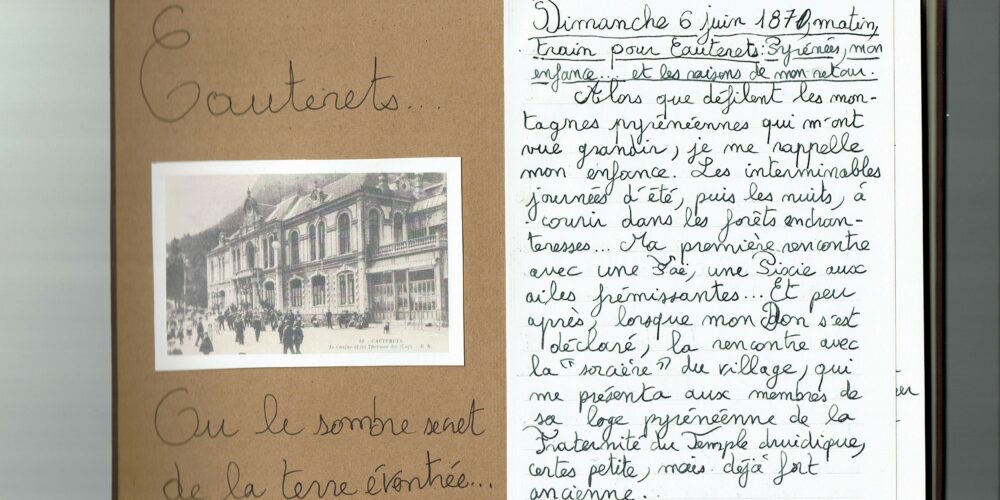 Cauterets...
CAUTERETS
Ou le sombre secret
de la terre éventrée...
Dimanche 6 juin 1870, matin,
train pour Cauterets: Pyrénées, mon
enfance.... et les raisons de mon retour.
Alors que défilent les mon-
tagnes pyrénéennes qui m'ont
vue grandir, je me rappelle
mon enfance. Les interminables
journées d'été, puis les nuits, à
courir dans les forêts enchan-
teresses... Ma première rencontre
avec une Faë, une Pixie aux
ailes frémissantes... Et peu
après, lorsque mon Don s'est
déclaré, la rencontre avec
la "sorcière" du village, qui
me présenta aux membres de
sa loge pyrénéenne de la
Fraternité du Temple druidique,
certes petite, mais déjà fort
ancienne...